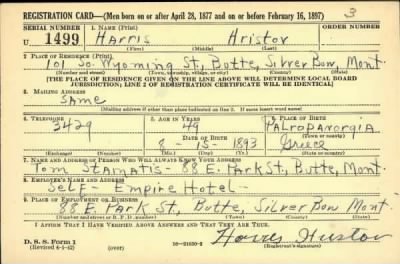 REGISTRATION CARD—(Men born on or after April 28, 1877 and on or before February 16, 1897) 3
SERIAL NUMBER 1. NAME (Print) ORDER NUMBER
U 1499 Harris Hristov
(First) (Middle) (Last)
2. PLACE OF RESIDENCE (Print)
101 So. Wyoming St, Butte, Silver Bow, Mont.
(Number and street) (Town, township, village, or city) (County) (State)
[THE PLACE OF RESIDENCE GIVEN ON THE LINE ABOVE WILL DETERMINE LOCAL BOARD
JURISDICTION; LINE 2 OF REGISTRATION CERTIFICATE WILL BE IDENTICAL]
3. MAILING ADDRESS
Same
[Mailing address if other than place indicated on line 2. If same insert word same]
4. TELEPHONE 5. AGE IN YEARS 6. PLACE OF BIRTH
3429 49 Palropanorgia
DATE OF BIRTH (Town or county)
8 - 15 - 1893 Greece
(Exchange) (Number) (Mo.) (Day) (Yr.) (State or country)
7. NAME AND ADDRESS OF PERSON WHO WILL ALWAYS KNOW YOUR ADDRESS
Tom Stamatis - 88 E. Park St, Butte, Mont
8. EMPLOYER'S NAME AND ADDRESS
Self - Empire Hotel -
9. PLACE OF EMPLOYMENT OR BUSINESS
88 E. Park St, Butte, Silver Bow Mont.
(Number and street or R. F. D. number) (Town) (County) (State)
I AFFIRM THAT I HAVE VERIFIED ABOVE ANSWERS AND THAT THEY ARE TRUE.
D. S. S. Form 1
(Revised 4-1-42) (over) 16—21630-2 (Registrant's signature)